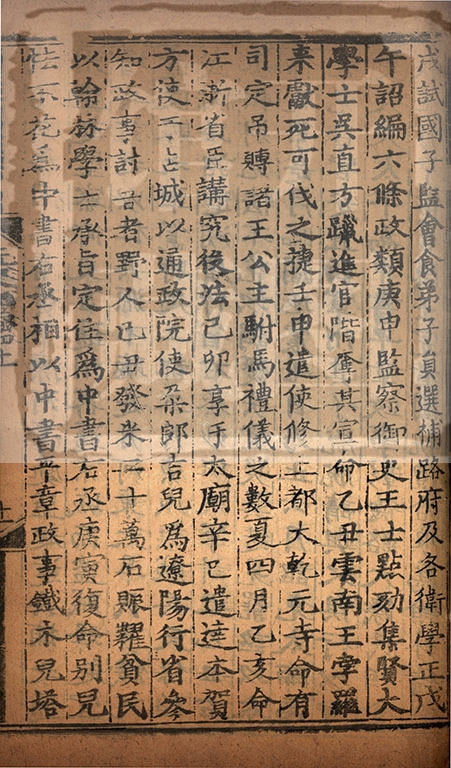 戌試國子監會食弟子員選補路府及各衛學正戊
午詔編六條政類庚申監察御史王士點劾集賢大
學士吳直方躐進官階奪其宣命乙丑雲南王孛羅
來獻死可伐之捷壬申遣使修上都大乾元寺命有
司定吊賻諸王公主駙馬禮儀之數夏四月乙亥命
江浙省臣講究役法己卯享于太廟辛巳遣達本賀
方使于占城以通政院使朶郎吉兒爲遼陽行省參
知政事討吾者野人己丑發米二十萬石賑糶貧民
以翰林學士承旨定住爲中書右丞庚寅復命別兒
怯不花爲中書右丞相以中書平章政事鐵木兒塔